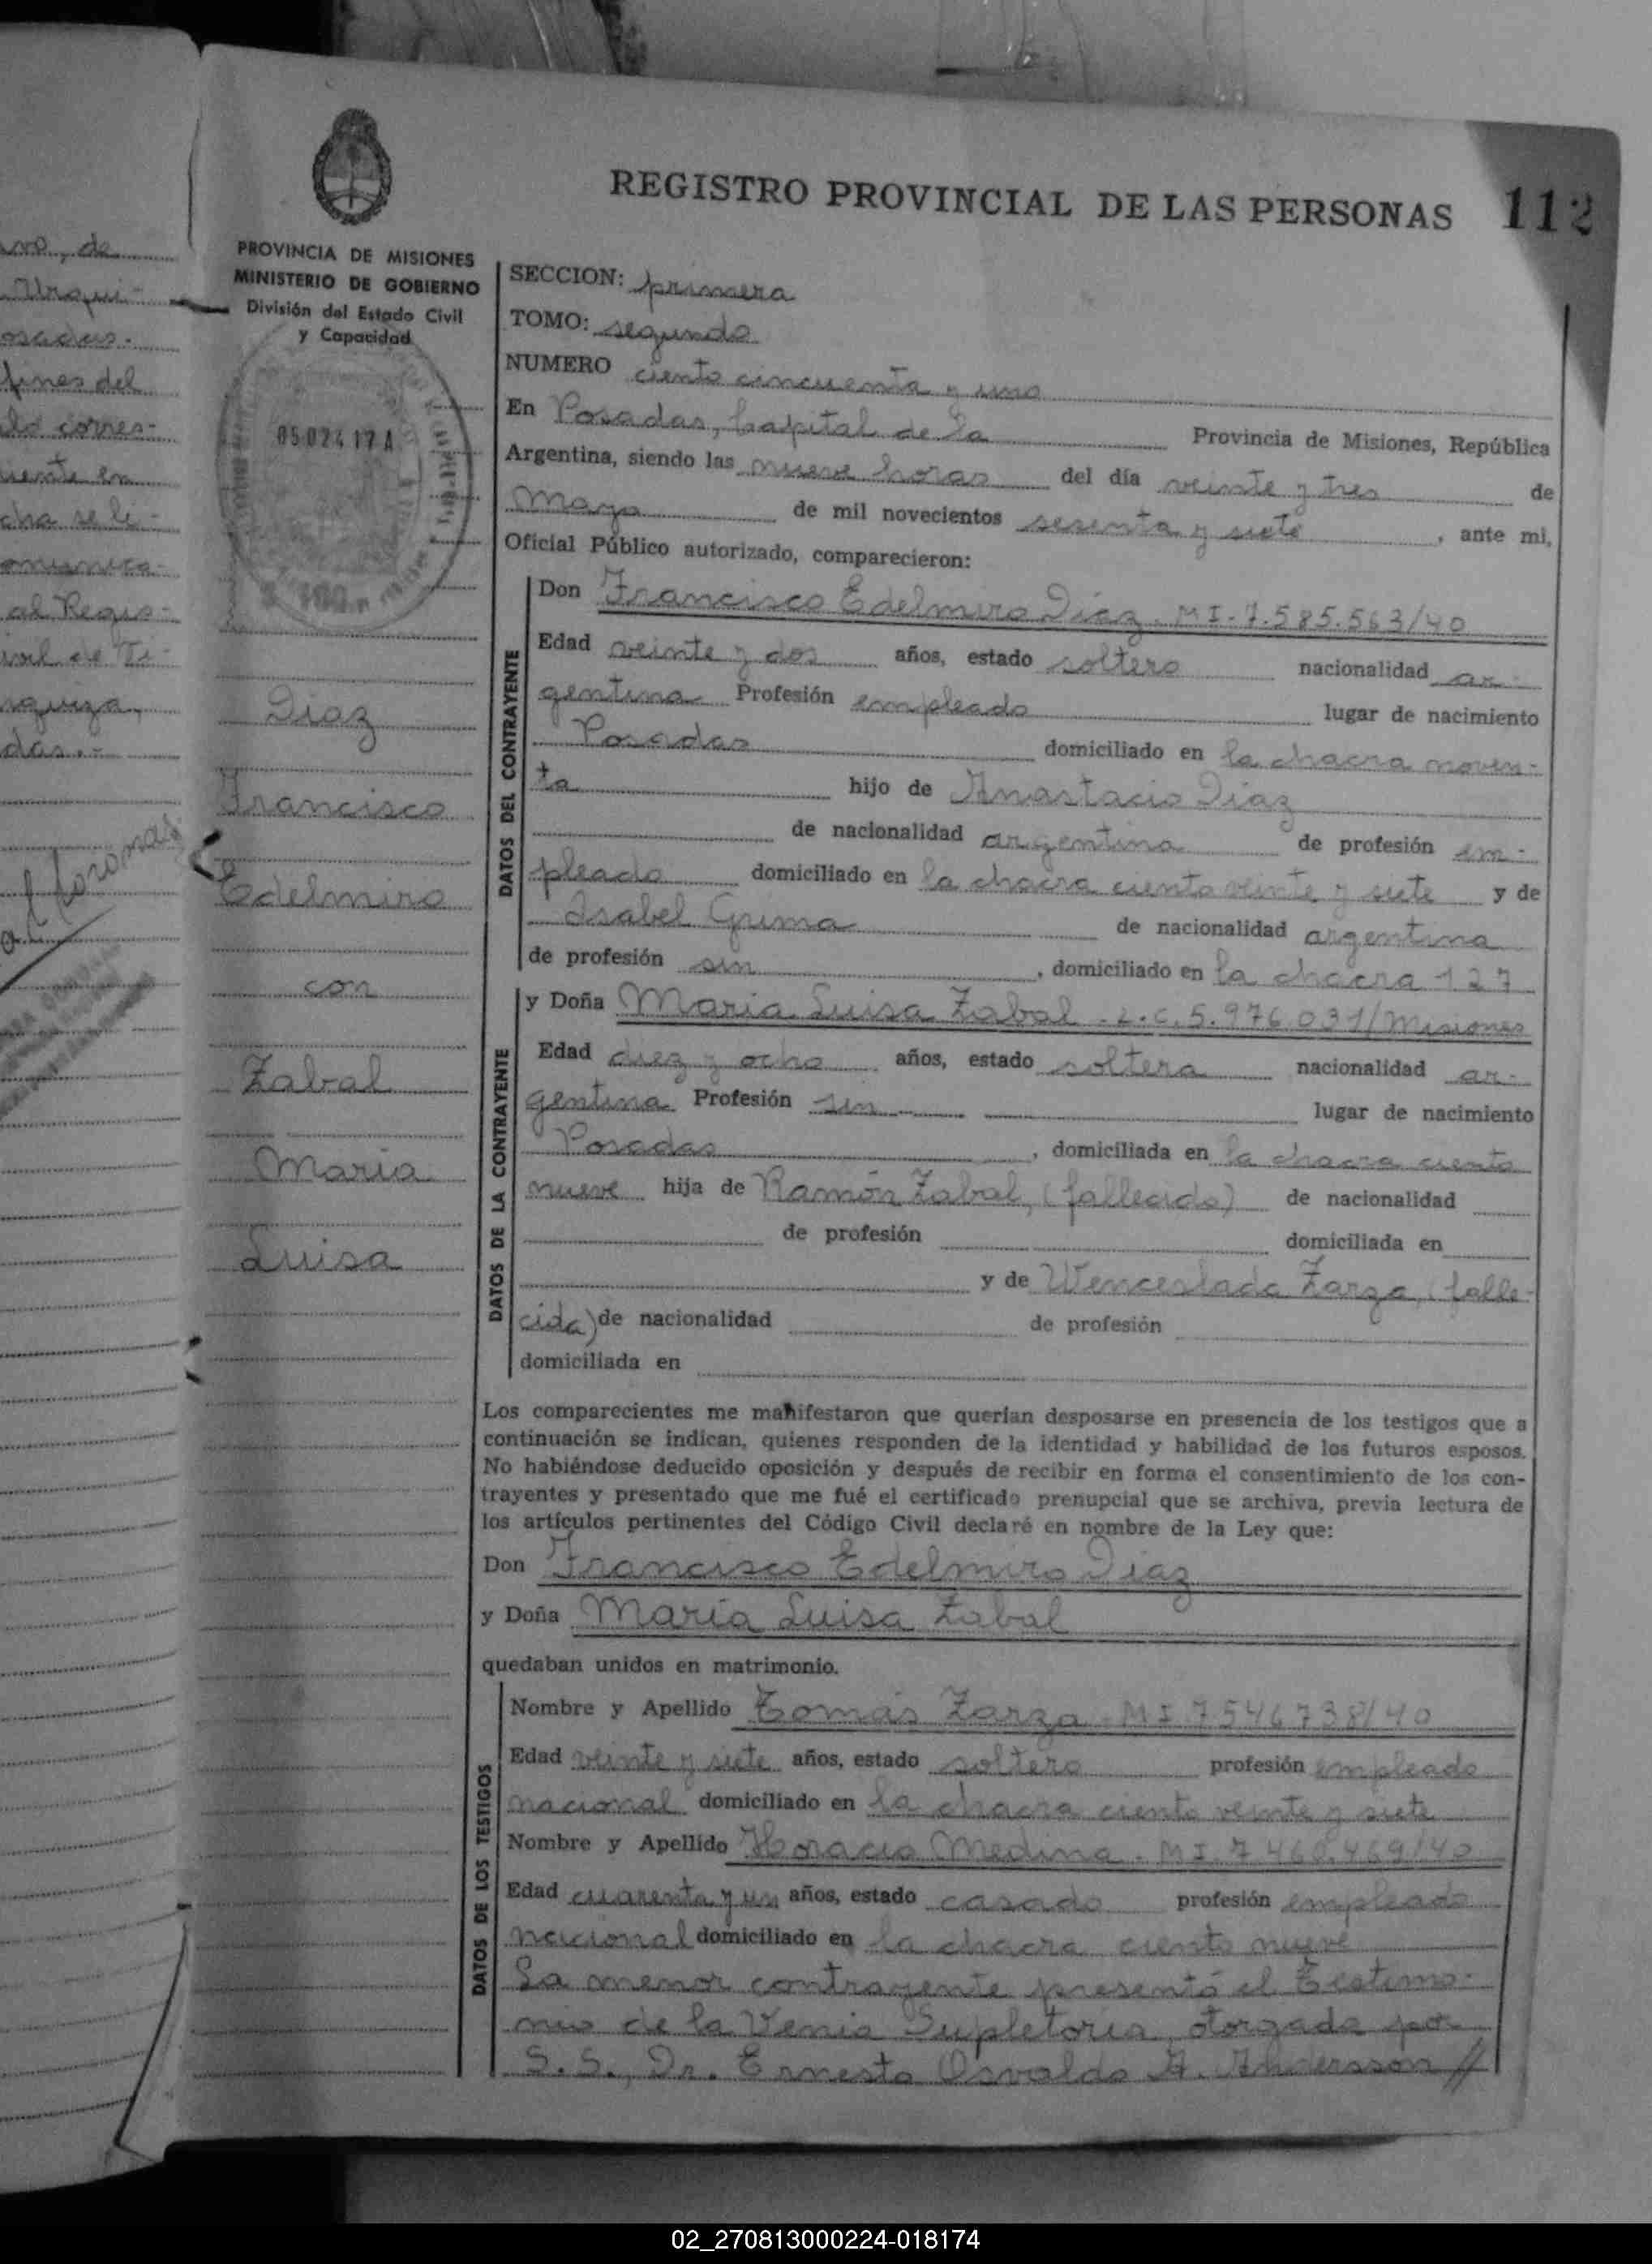 vo, de
Urqui-
osadas.-
fines del
lo corres-
iente en
cha se li-
omunica-
al Regis-
ivil de Ti-
rquiza,
das.-
PROVINCIA DE MISIONES
MINISTERIO DE GOBIERNO
División del Estado Civil
y Capacidad
05024 17 A
Diaz
Francisco
Edelmiro
con
Zabal
Maria
Luisa
REGISTRO PROVINCIAL DE LAS PERSONAS 112
SECCION: primera
TOMO: segundo
NUMERO ciento cincuenta y uno
En Posadas, Capital de la Provincia de Misiones, República
Argentina, siendo las nueve horas del día veinte y tres de
Mayo de mil novecientos sesenta y siete, ante mi,
Oficial Público autorizado, comparecieron:
DATOS DEL CONTRAYENTE
Don Francisco Edelmiro Diaz. MI-7.585.563/40
Edad veinte y dos años, estado soltero nacionalidad ar-
gentina Profesión empleado lugar de nacimiento
Posadas domiciliado en la chacra noven-
ta hijo de Anastacio Diaz
de nacionalidad argentina de profesión em-
pleado domiciliado en la chacra ciento veinte y siete y de
Isabel Grima de nacionalidad argentina
de profesión sin, domiciliado en la chacra 127
DATOS DE LA CONTRAYENTE
y Doña Maria Luisa Zabal. L.C.5.976.031/Misiones
Edad diez y ocho años, estado soltera nacionalidad ar-
gentina Profesión sin lugar de nacimiento
Posadas, domiciliada en la chacra ciento
nueve hija de Ramón Zabal, (fallecido) de nacionalidad
de profesión domiciliada en
y de Wenceslada Zarza, (falle-
cida) de nacionalidad de profesión
domiciliada en
Los comparecientes me manifestaron que querían desposarse en presencia de los testigos que a
continuación se indican, quienes responden de la identidad y habilidad de los futuros esposos.
No habiéndose deducido oposición y después de recibir en forma el consentimiento de los con-
trayentes y presentado que me fué el certificado prenupcial que se archiva, previa lectura de
los artículos pertinentes del Código Civil declaré en nombre de la Ley que:
Don Francisco Edelmiro Diaz
y Doña María Luisa Zabal
quedaban unidos en matrimonio.
DATOS DE LOS TESTIGOS
Nombre y Apellido Tomás Zarza. MI 7546738/40
Edad veinte y siete años, estado soltero profesión empleado
nacional domiciliado en la chacra ciento veinte y siete
Nombre y Apellido Horacio Medina. MI.7.460.469/40
Edad cuarenta y un años, estado casado profesión empleado
nacional domiciliado en la chacra ciento nueve
La menor contrayente presentó el Testimo-
nio de la Venia Supletoria, otorgada por
S.S., Dr. Ernesto Osvaldo A. Andersson //
02_270813000224-018174